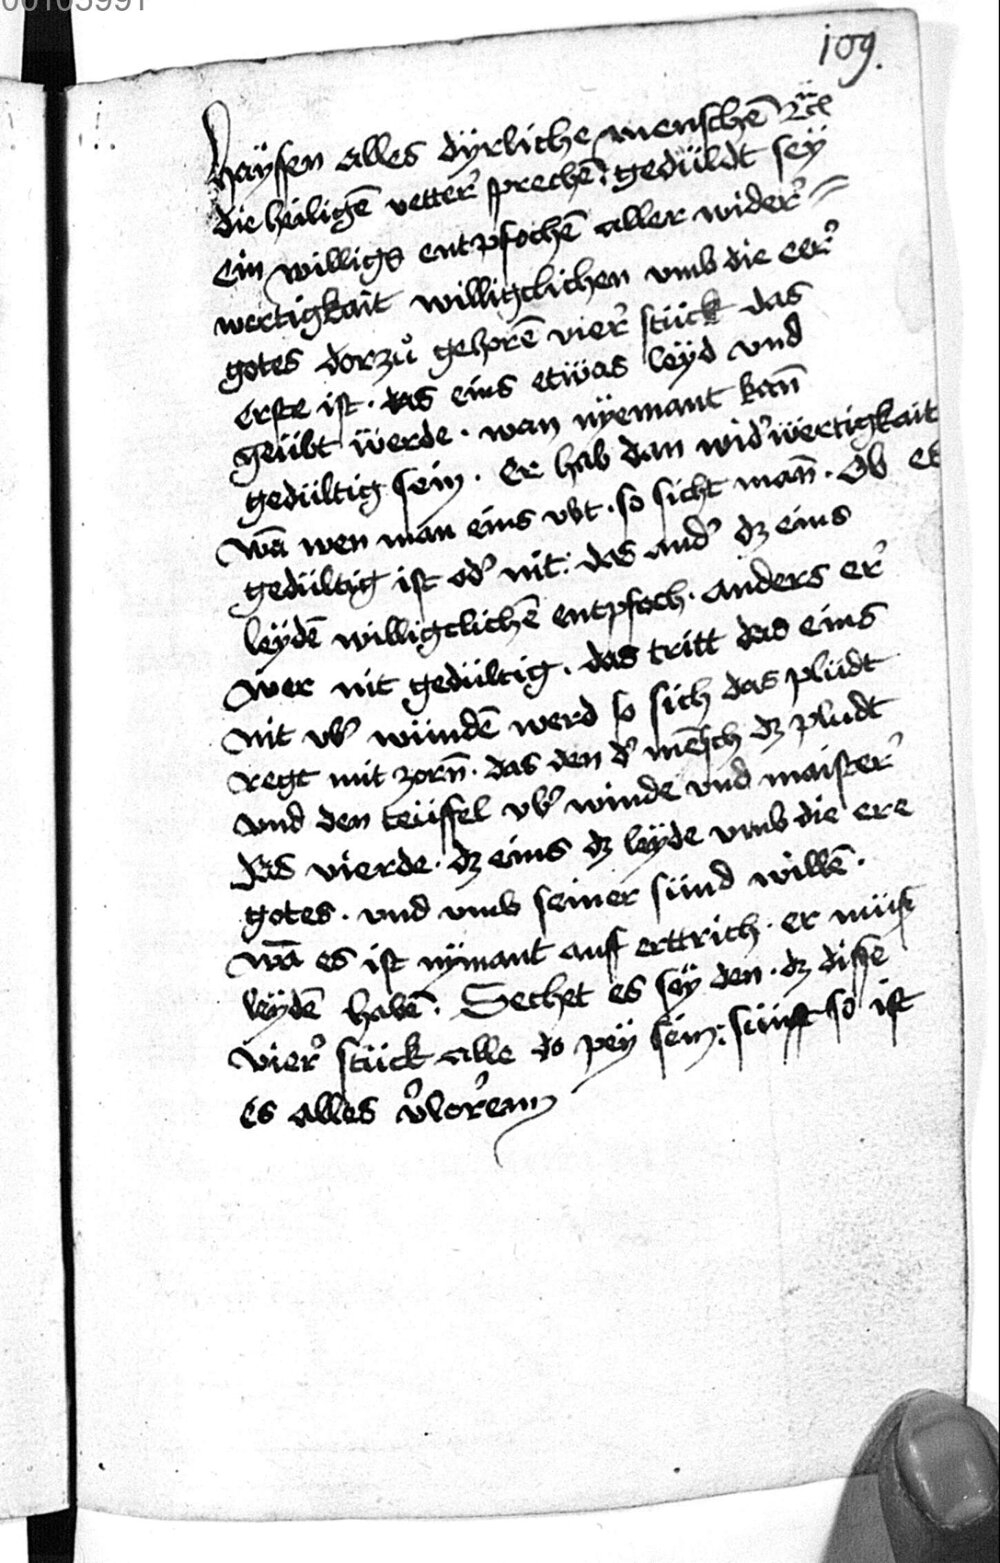 00103991
109.
haÿssen alles dÿrliche menschē
die heiligē vetter sprechē: gedüldt seÿ
ein willigs entpfochē aller wider=
wertigkait willigclichen vmb die eer
gotes dorzů gehorē vier stück das
erste ist. das eins etwas leÿd vnd
geübt werde. wan nÿemant kan̄
gedültig sein. Er hab dan wid'wertigkait
wā wen man eins vbt. so sicht man̄. Ob es
gedültig ist od' nit: das and' dz eins
leÿdē willigclichē entpfoch. anders er
wer nit gedültig. das tritt das eins
nit vb' wündē werd so sich das plüdt
regt mit zorn̄. das den d' mēsch dz pludt
vnd den teüffel vb' winde vnd maister
das vierde. dz eins dz leÿde vmb die ere
gotes. vnd vmb seiner sünd willē.
wā es ist nÿmant auff erttrich. er müst
leÿdē habē. Sechet es seÿ den. dz disse
vier stück alle do peÿ sein: sünst so ist
es alles v'loren